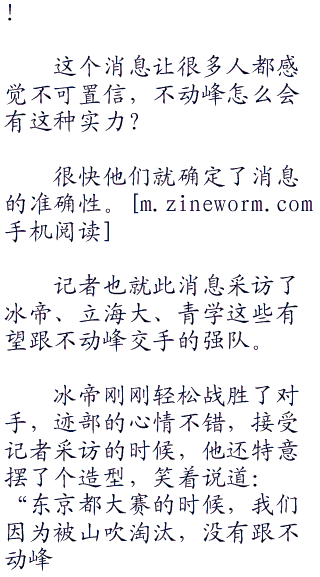 ！
这个消息让很多人都感
觉不可置信，不动峰怎么会
有这种实力？
很快他们就确定了消息
的准确性。[m.zineworm.com
手机阅读]
记者也就此消息采访了
冰帝、立海大、青学这些有
望跟不动峰交手的强队。
冰帝刚刚轻松战胜了对
手，迹部的心情不错，接受
记者采访的时候，他还特意
摆了个造型，笑着说道：
“东京都大赛的时候，我们
因为被山吹淘汰，没有跟不
动峰